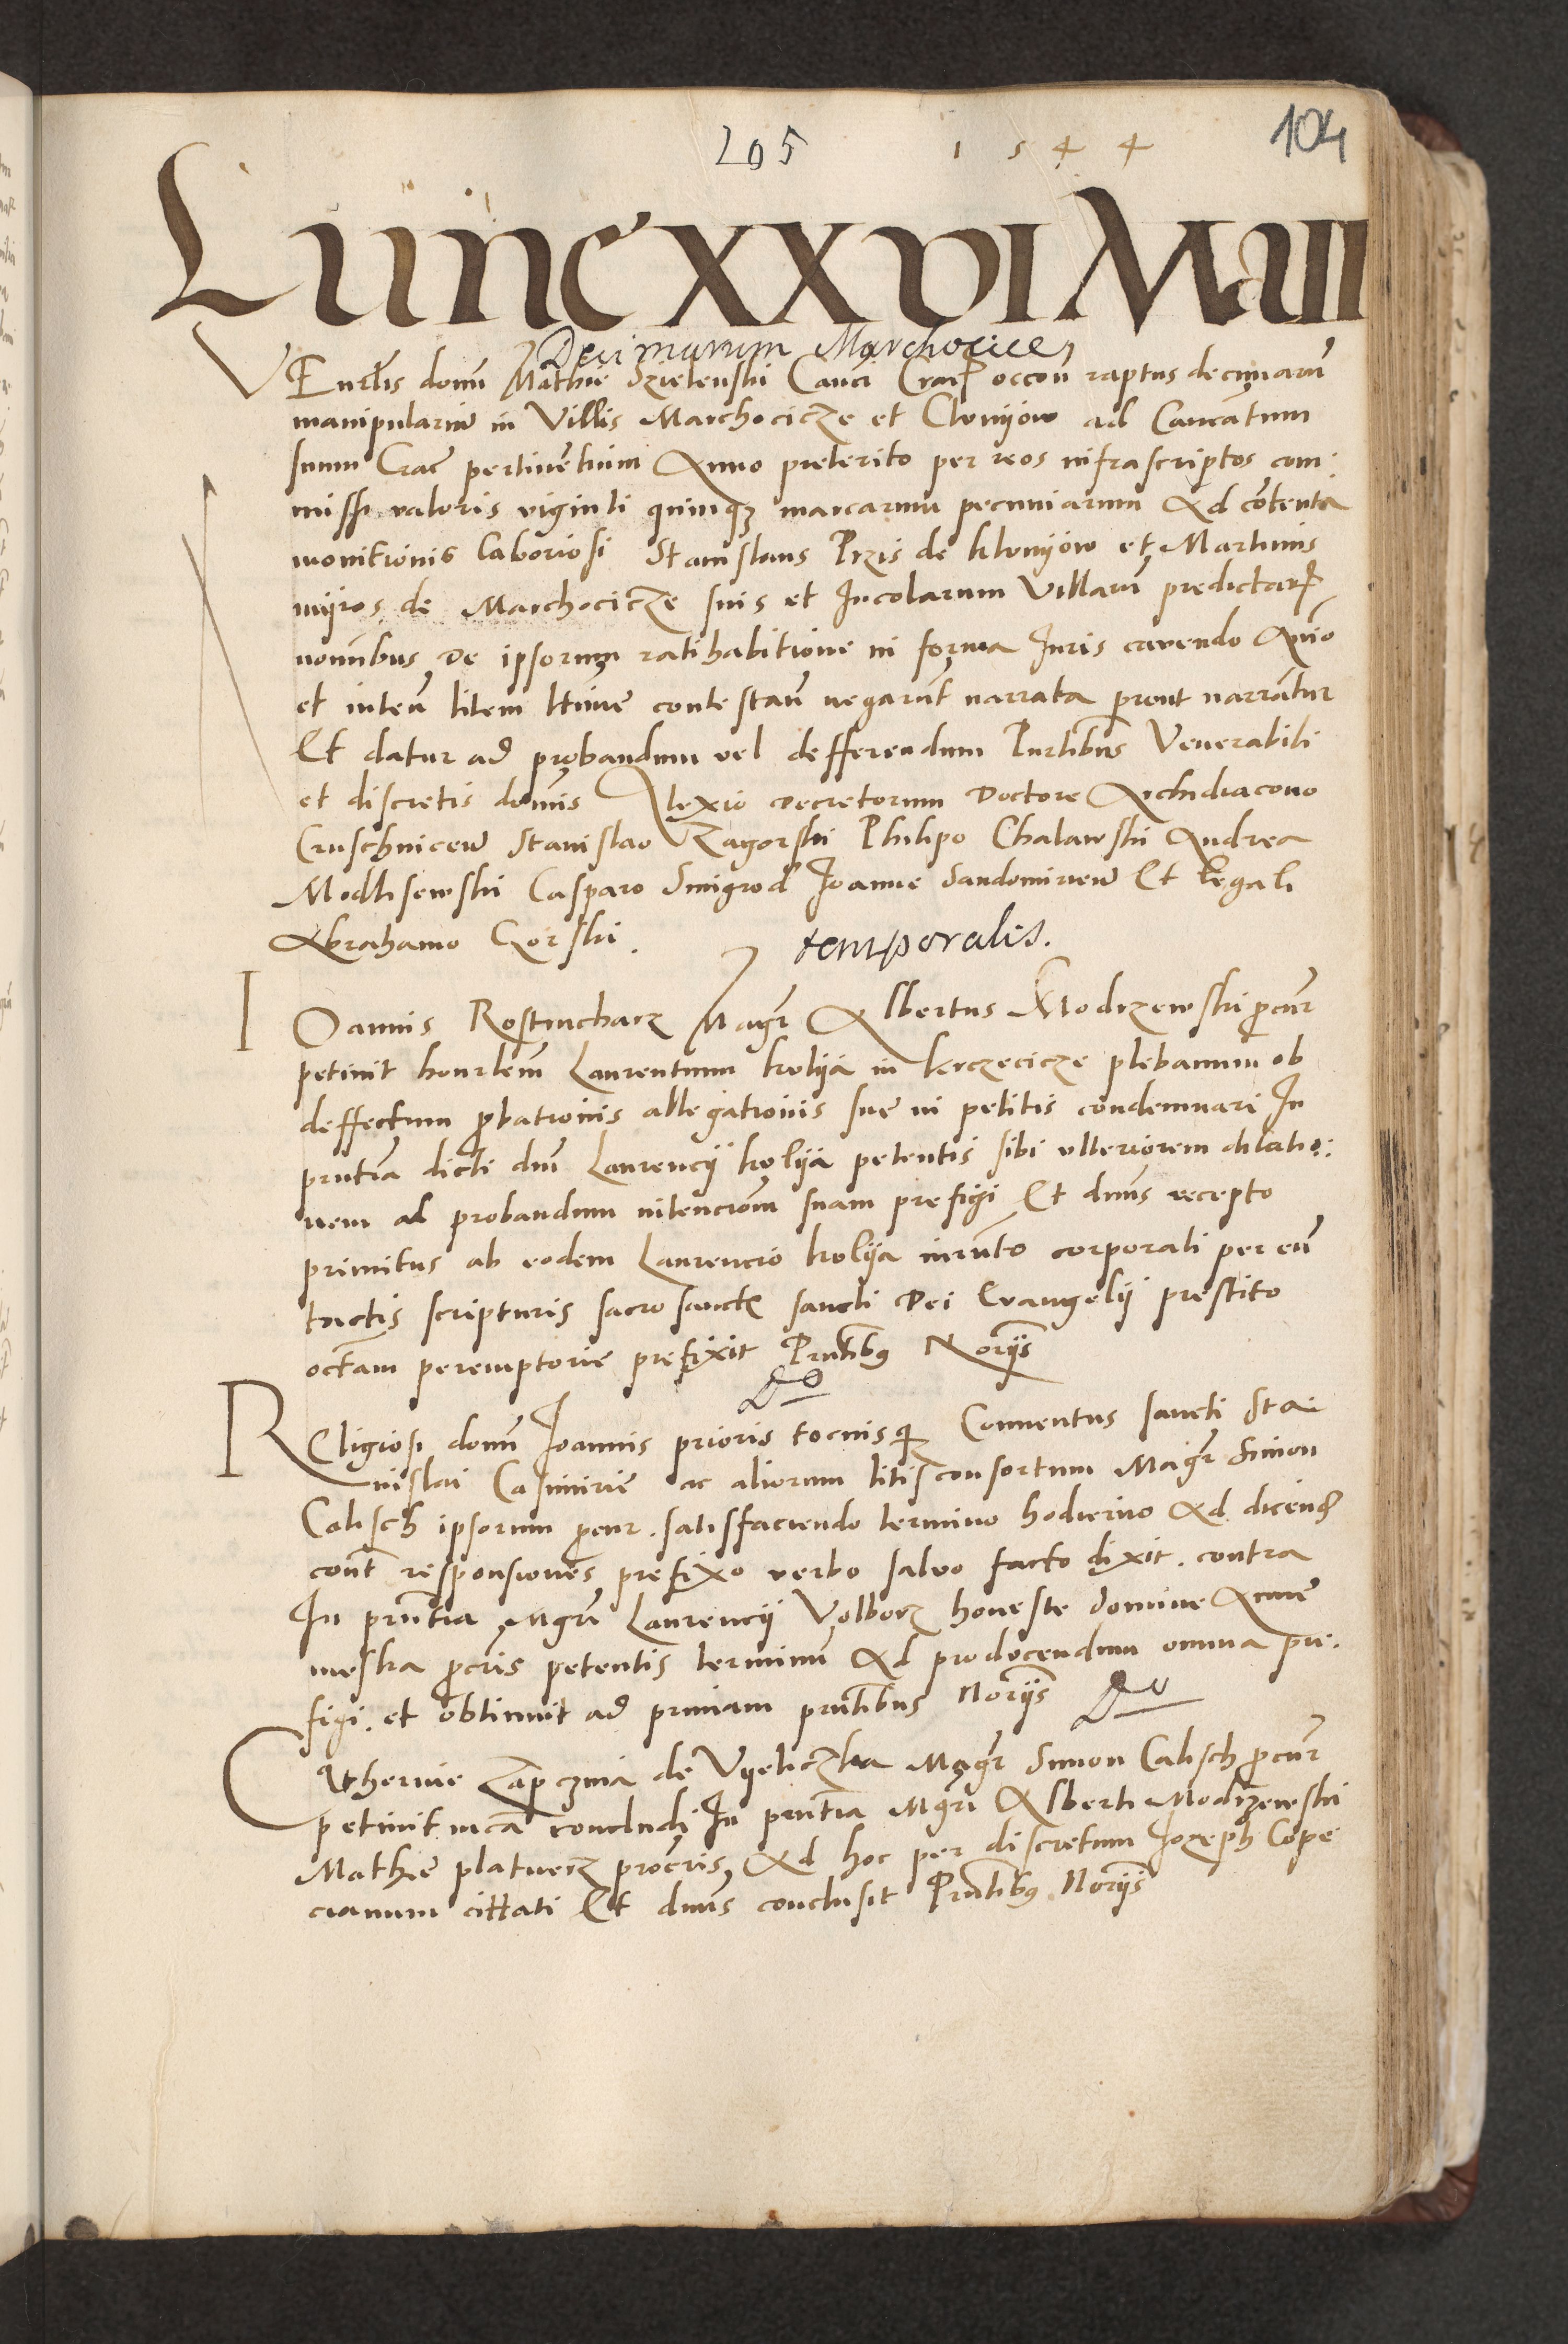 205 1 5 4 4 104
Lune XXVI Maii
Decimarum Marchocice
VEnerlis domi Mathie Szielenski Canci Crac occon raptus decimarum
manipularium in Villis Marchocicze et Clonijow ad Cancatum
suum Crac pertinentium Anno preterito per reos infrascriptos com:
missi valoris viginti quinqz marcarum pecuniarum Ad contenta
monitionis Laboriosi Stanislaus Przis de Klonijow et Martinus
mijros de Marchocicze suis et Incolarum Villarum predictarum
nominibus De ipsorum ratihabitione in forma Iuris cavendo Animo
et intentu litem lttime contestan negarunt narrata prout narrantur
Et datur ad probandum vel defferendum Pntibus Venerabili
et discretis dominis Alexio Decretorum Doctore Archidiacono
Cruschvicen Stanislao Zagorski Philipo Chalawski Andrea
Modlisewski Casparo Smigrod Joanne Sandomirien Et Legali
Abrahamo Gorski.
temporalis.
IOannis Rospirucharz Magr Albertus Modrzewski pcur
petivit honrlem Laurentium kolija in kerczecicze plebanum ob
deffectum pbationis allegationis sue in petitis condemnari In
pntia dicti dni Laurencij kolija petentis sibi ulteriorem dilatio:
nem ad probandum intencionem suam prefigi Et dnus recepto
primitus ab eodem Laurencio kolija iurnto corporali per eum
tactis scripturis sacrosancte sancti Dei Evangelij prestito
octavam peremptorie prefixit Pntibus Norijs
REligiosi domi Joannis prioris tociusqz Conventus sancti Sta:
nislai Casimirie ac aliorum litisconsortum Magr Simon
Calisch ipsorum pcur. satisfaciendo termino hodierno Ad dicend
cont responsiones prefixo verbo salvo facto dixit contra
In pntia Mgri Laurencij Volborz honeste domine Anne
pcris petentis terminum Ad producendum omnia pre:
figi. et obtinuit ad primam pntibus Norijs
CAtherine de Vyeliczka Magr Simon Calisch pcur
petivit in ca concludi In pntia Mgri Alberti Modrzewski
Mathie platnerz procris, Ad hoc per discretum Jozeph Cope
cianum cittati Et dnus conclusit Pntibus Norijs